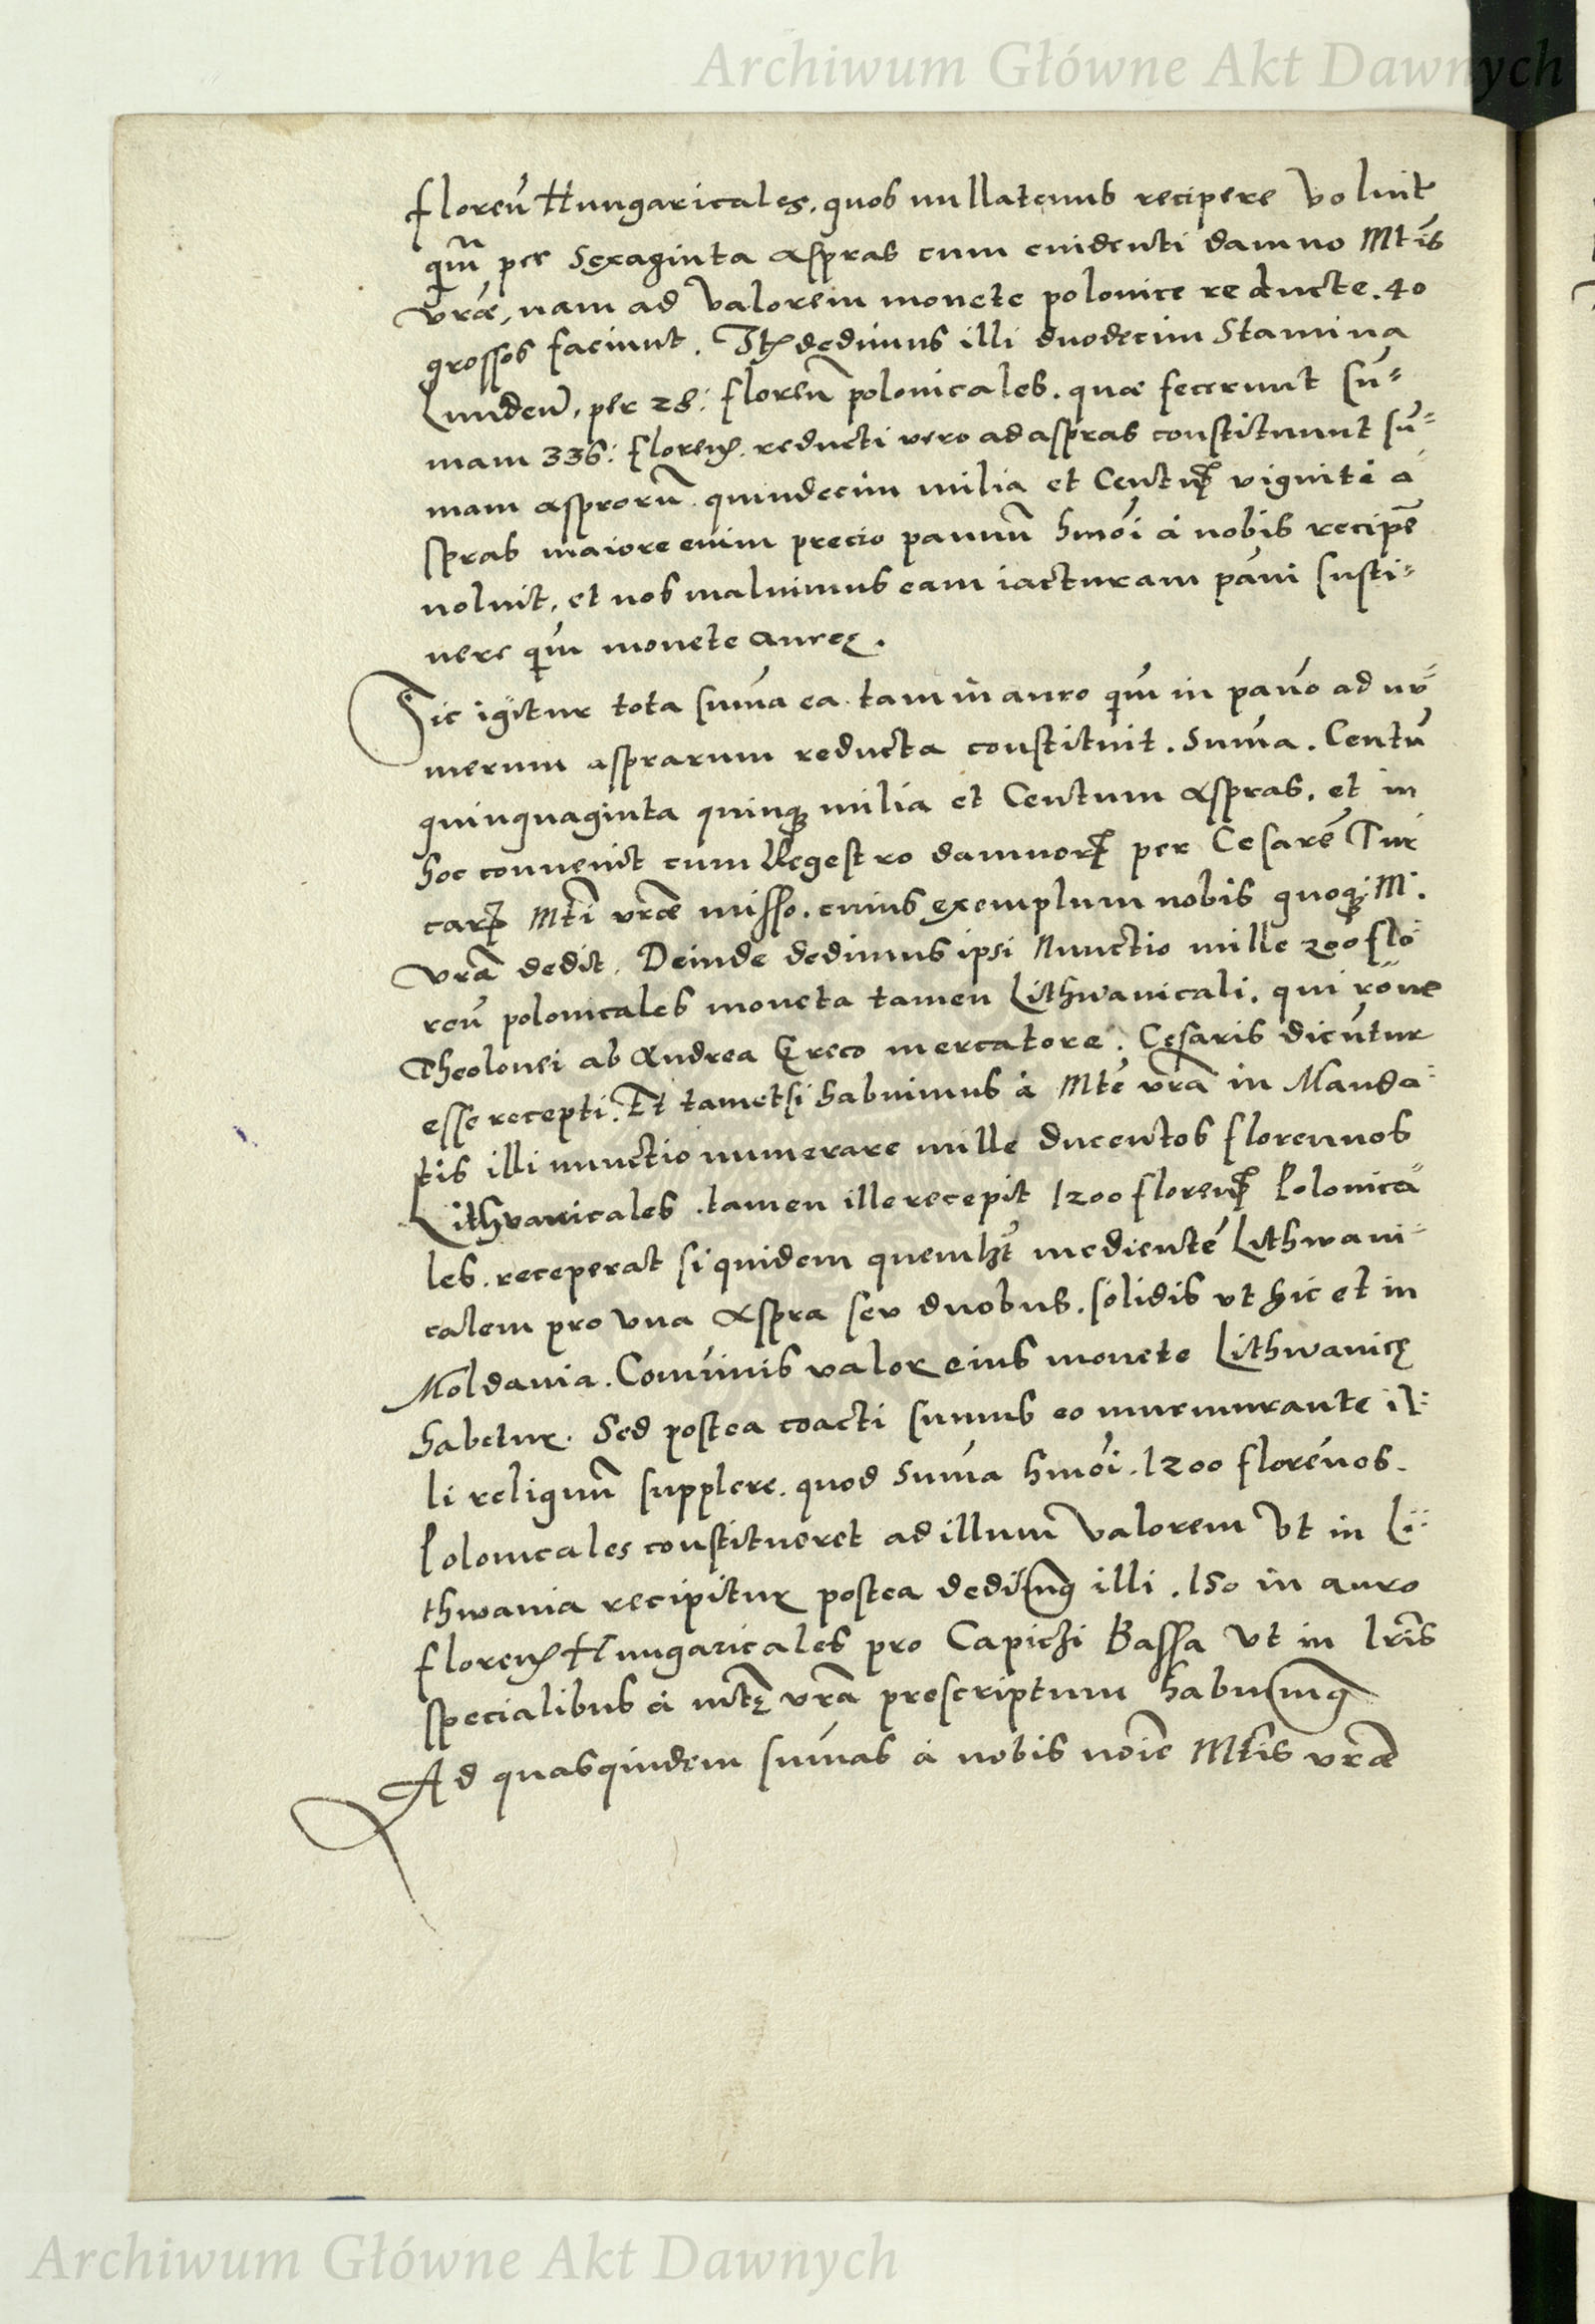 Archiwum Główne Akt Dawnych
floreñ Hungaricales. quos nullatenus recipere voluit
qm̃ per Sexaginta aspras cum euidenti damno Mtis̃
vrãe, nam ad valorem monete polonice reducte. 40
grossos faciunt. Itꝫ dedimus illi duodecim Stamina
Lunden̄. per 28: floreñ polonicales. quæ fecerunt sũ-
mam 336: florenꝫ. reducti vero ad aspras constituunt sũ-
mam asprorũ. quindecim milia et Centuꝫ viginti a
spras maiore enim precio pannũ hmõi à nobis recipẽ
noluit, et nos maluimus eam iacturam pãni susti-
nere qm̃ monete aureę.
Sic igitur tota sum̃a ea tam in auro qm̃ in pañο ad nu-
merum asprarum reducta constituit. Sum̃a. Centũ
quinquaginta quinqꝫ milia et Centum aspras, et in
hoc conuenit cum Regestro damnorꝫ per Cesarẽ Tur
carꝫ Mtĩ vrãe misso. cuius exemplum nobis quoqꝫ M.
vrã dedit. Deinde dedimus ipsi Nunctio mille 200 flo
reñ polonicales moneta tamen Lithwanicali. qui rõne
Theolonei ab Andrea Greco mercatore. Cesaris dicũtur
esse recepti. Et tametsi habuimus à Mtẽ vrã in Manda-
tis illi nunctio numerare mille ducentos florennos
Lithvanicales. tamen ille recepit 1200 florenꝫ Polonica-
les. receperat siquidem quemlꝫt medientẽ Lithwani-
calem pro una aspra seu duobus. solidis vt hic et in
Moldauia. Com̃unis valor eius monete Lithwanicę
habetur. Sed postea coacti sumus eo murmurante il-
li reliquũ supplere. quod sum̃a hmõi. 1200 florẽnos.
Polonicales constitueret ad illum valorem Vt in Li-
thwania recipitur postea dedimꝰ illi. 150 in auro
florenꝫ Hungaricales pro Capichi Bassa Vt in lrĩs
specialibus à mtẽ vrã prescriptum habuimꝰ
Ad quasquidem sum̃as à nobis noĩe Mtis̃ vrãe
Archiwum Główne Akt Dawnych